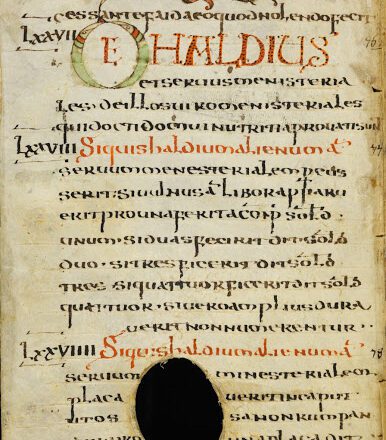 cessante faida eo quod nolendo fecit
LXXVII DE HALDIUS
et seruius menisteria
les· deillos uiro menisteriales
qui docti domui nutriti aprouati sun
LXXVIII Siquis haldium alienum at
seruum menesterialem percus
serit· si uulnus at libor apparu
erit pro una ferita conp sold·
unum· si duas fecerit dit sold
duo· si tres ficerit dit sold
tres si quattuor ficerit dit sold
quattuor· si uero amplius dura
uerit non numerentur··
LXXVIIII Siquis haldium alienum at
seruum ministerialem
placa uerit in capit
uitos sa non rumpan
una placa